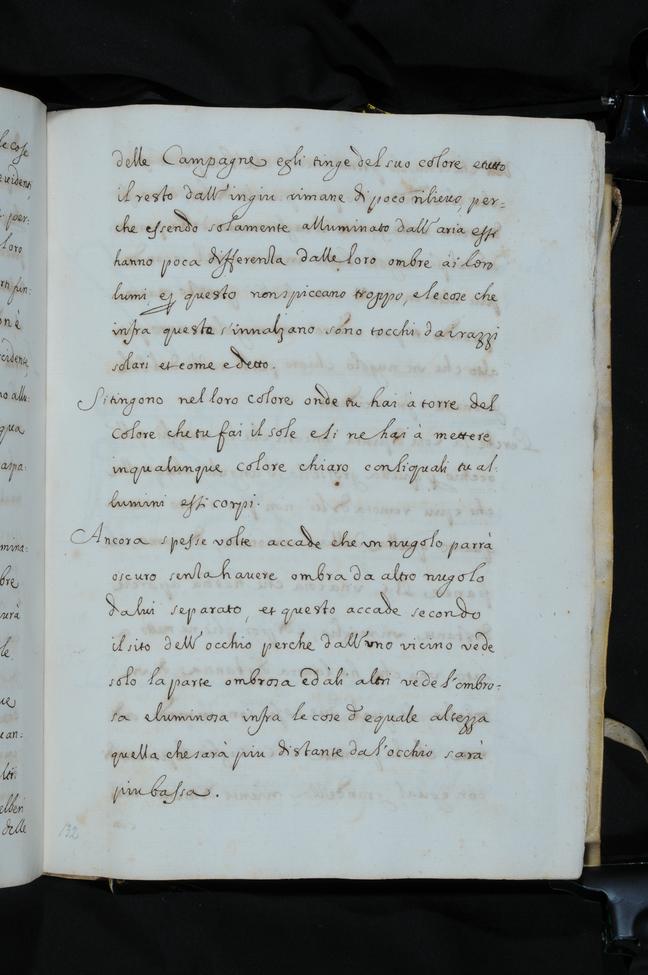 delle Campagne egli tinge del suo colore e tutto
il resto dall'ingiu rimane di poco rilievo, per=
che essendo solamente alluminato dall'aria essi
hanno poca differenza dalle loro ombre à i loro
lumi e questo non spiccano troppo, e le cose che
infra queste s'innalzano sono tocchi da i razzi
solari et come e detto.
Si tingono nel loro colore onde tu hai à torre del
colore che tu fai il sole e si ne hai à mettere
in qualunque colore chiaro con li quali tu al:
lumini essi corpi.
Ancora spesse volte accade che un nugolo parrà
oscuro senza havere ombra da altro nugolo
da lui separato, et questo accade secondo
il sito dell'occhio perche dall'uno vicino vede
solo la parte ombrosa ed àli altri vede l'ombro=
sa e luminosa infra le cose d'equale altezza
quella che sarà piu distante da l'occhio sarà
piu bassa.
132